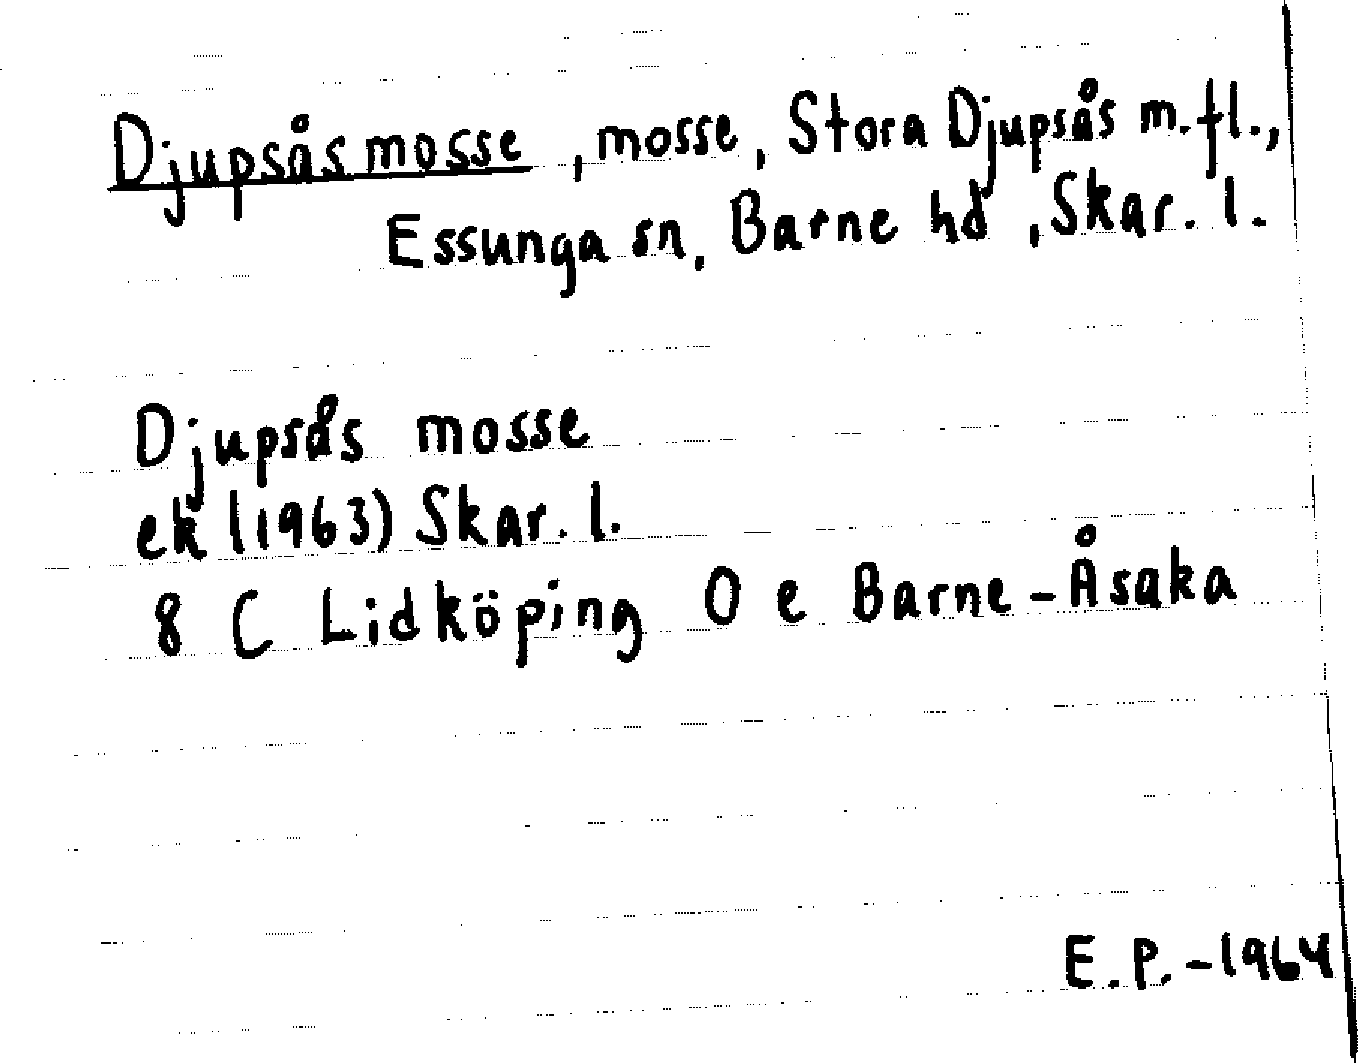 Djupsås mosse, mosse, Stora Djupsås m.fl.,
Essunga sn, Barne hd, Skar. l.
Djupsås mosse
ek (1963) Skar. l.
8 C Lidköping O e Barne-Åsaka
E.P.-1964